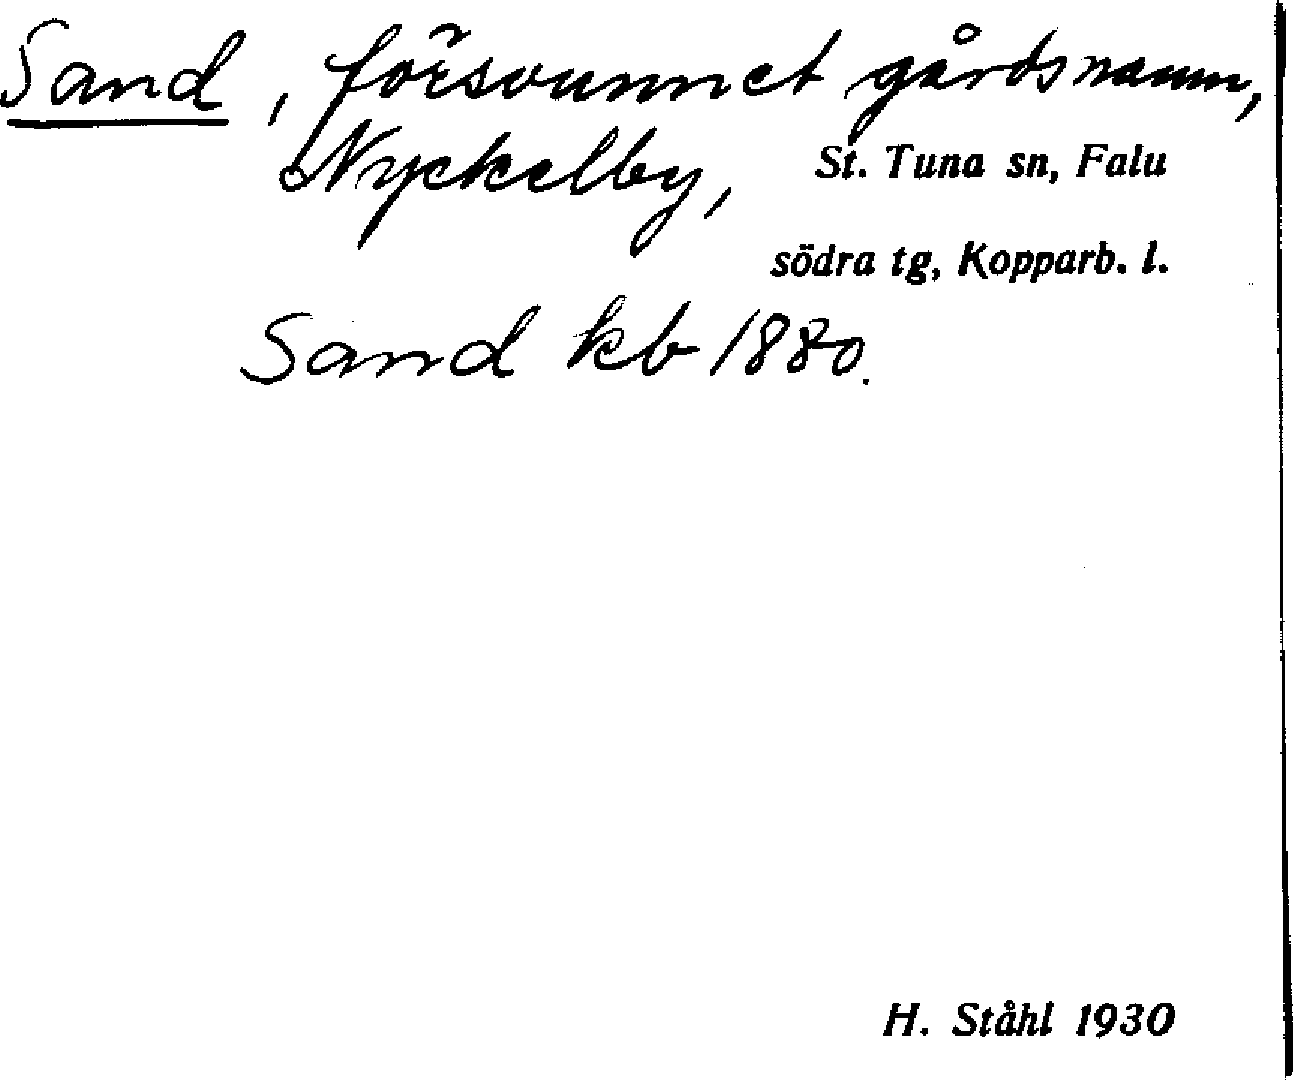 Sand, försvunnet gårdsnamn,
Nyckelby, St. Tuna sn, Falu
södra tg, Kopparb. l.
Sand kb 1880.
H. Ståhl 1930